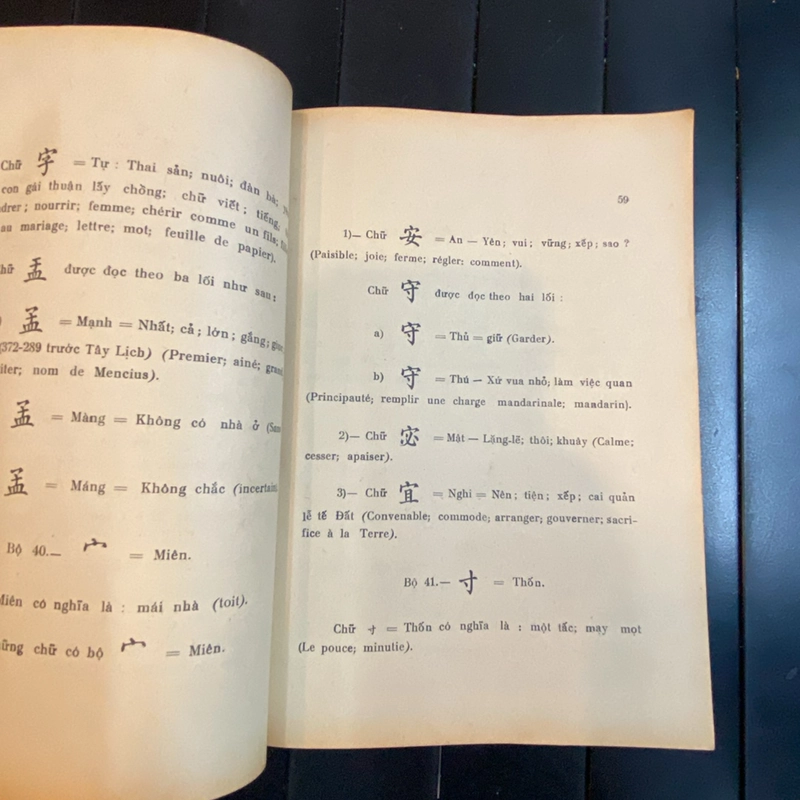 Chữ 字 = Tự : Thai sản; nuôi; đàn bà;
con gái thuận lấy chồng; chữ viết; tiếng,
drer; nourrir; femme; chérir comme un fils;
au mariage; lettre; mot; feuille de papier).
孟 được đọc theo ba lối như sau:
孟 = Mạnh = Nhất; cả; lớn; gắng;
(372-289 trước Tây Lịch) (Premier; ainé;
iter; nom de Mencius).
孟 = Màng = Không có nhà ở
孟 = Máng = Không chắc (incertain
Bộ 40.— 宀 = Miên.
Miên có nghĩa là : mái nhà (toit).
ững chữ có bộ 宀 = Miên.
59
1)— Chữ 安 = An — Yên; vui; vững; xếp; sao ?
(Paisible; joie; ferme; régler: comment).
Chữ 守 được đọc theo hai lối :
a) 守 = Thủ = giữ (Garder).
b) 守 = Thú — Xứ vua nhỏ; làm việc quan
(Principauté; remplir une charge mandarinale; mandarin).
2)— Chữ 宓 = Mật — Lặng-lẽ; thôi; khuây (Calme;
cesser; apaiser).
3)— Chữ 宜 = Nghi = Nên; tiện; xếp; cai quản
lễ tế Đất (Convenable; commode; arranger; gouverner; sacri-
fice à la Terre).
Bộ 41.— 寸 = Thốn.
Chữ 寸 = Thốn có nghĩa là : một tấc; mảy mọt
(Le pouce; minutie).